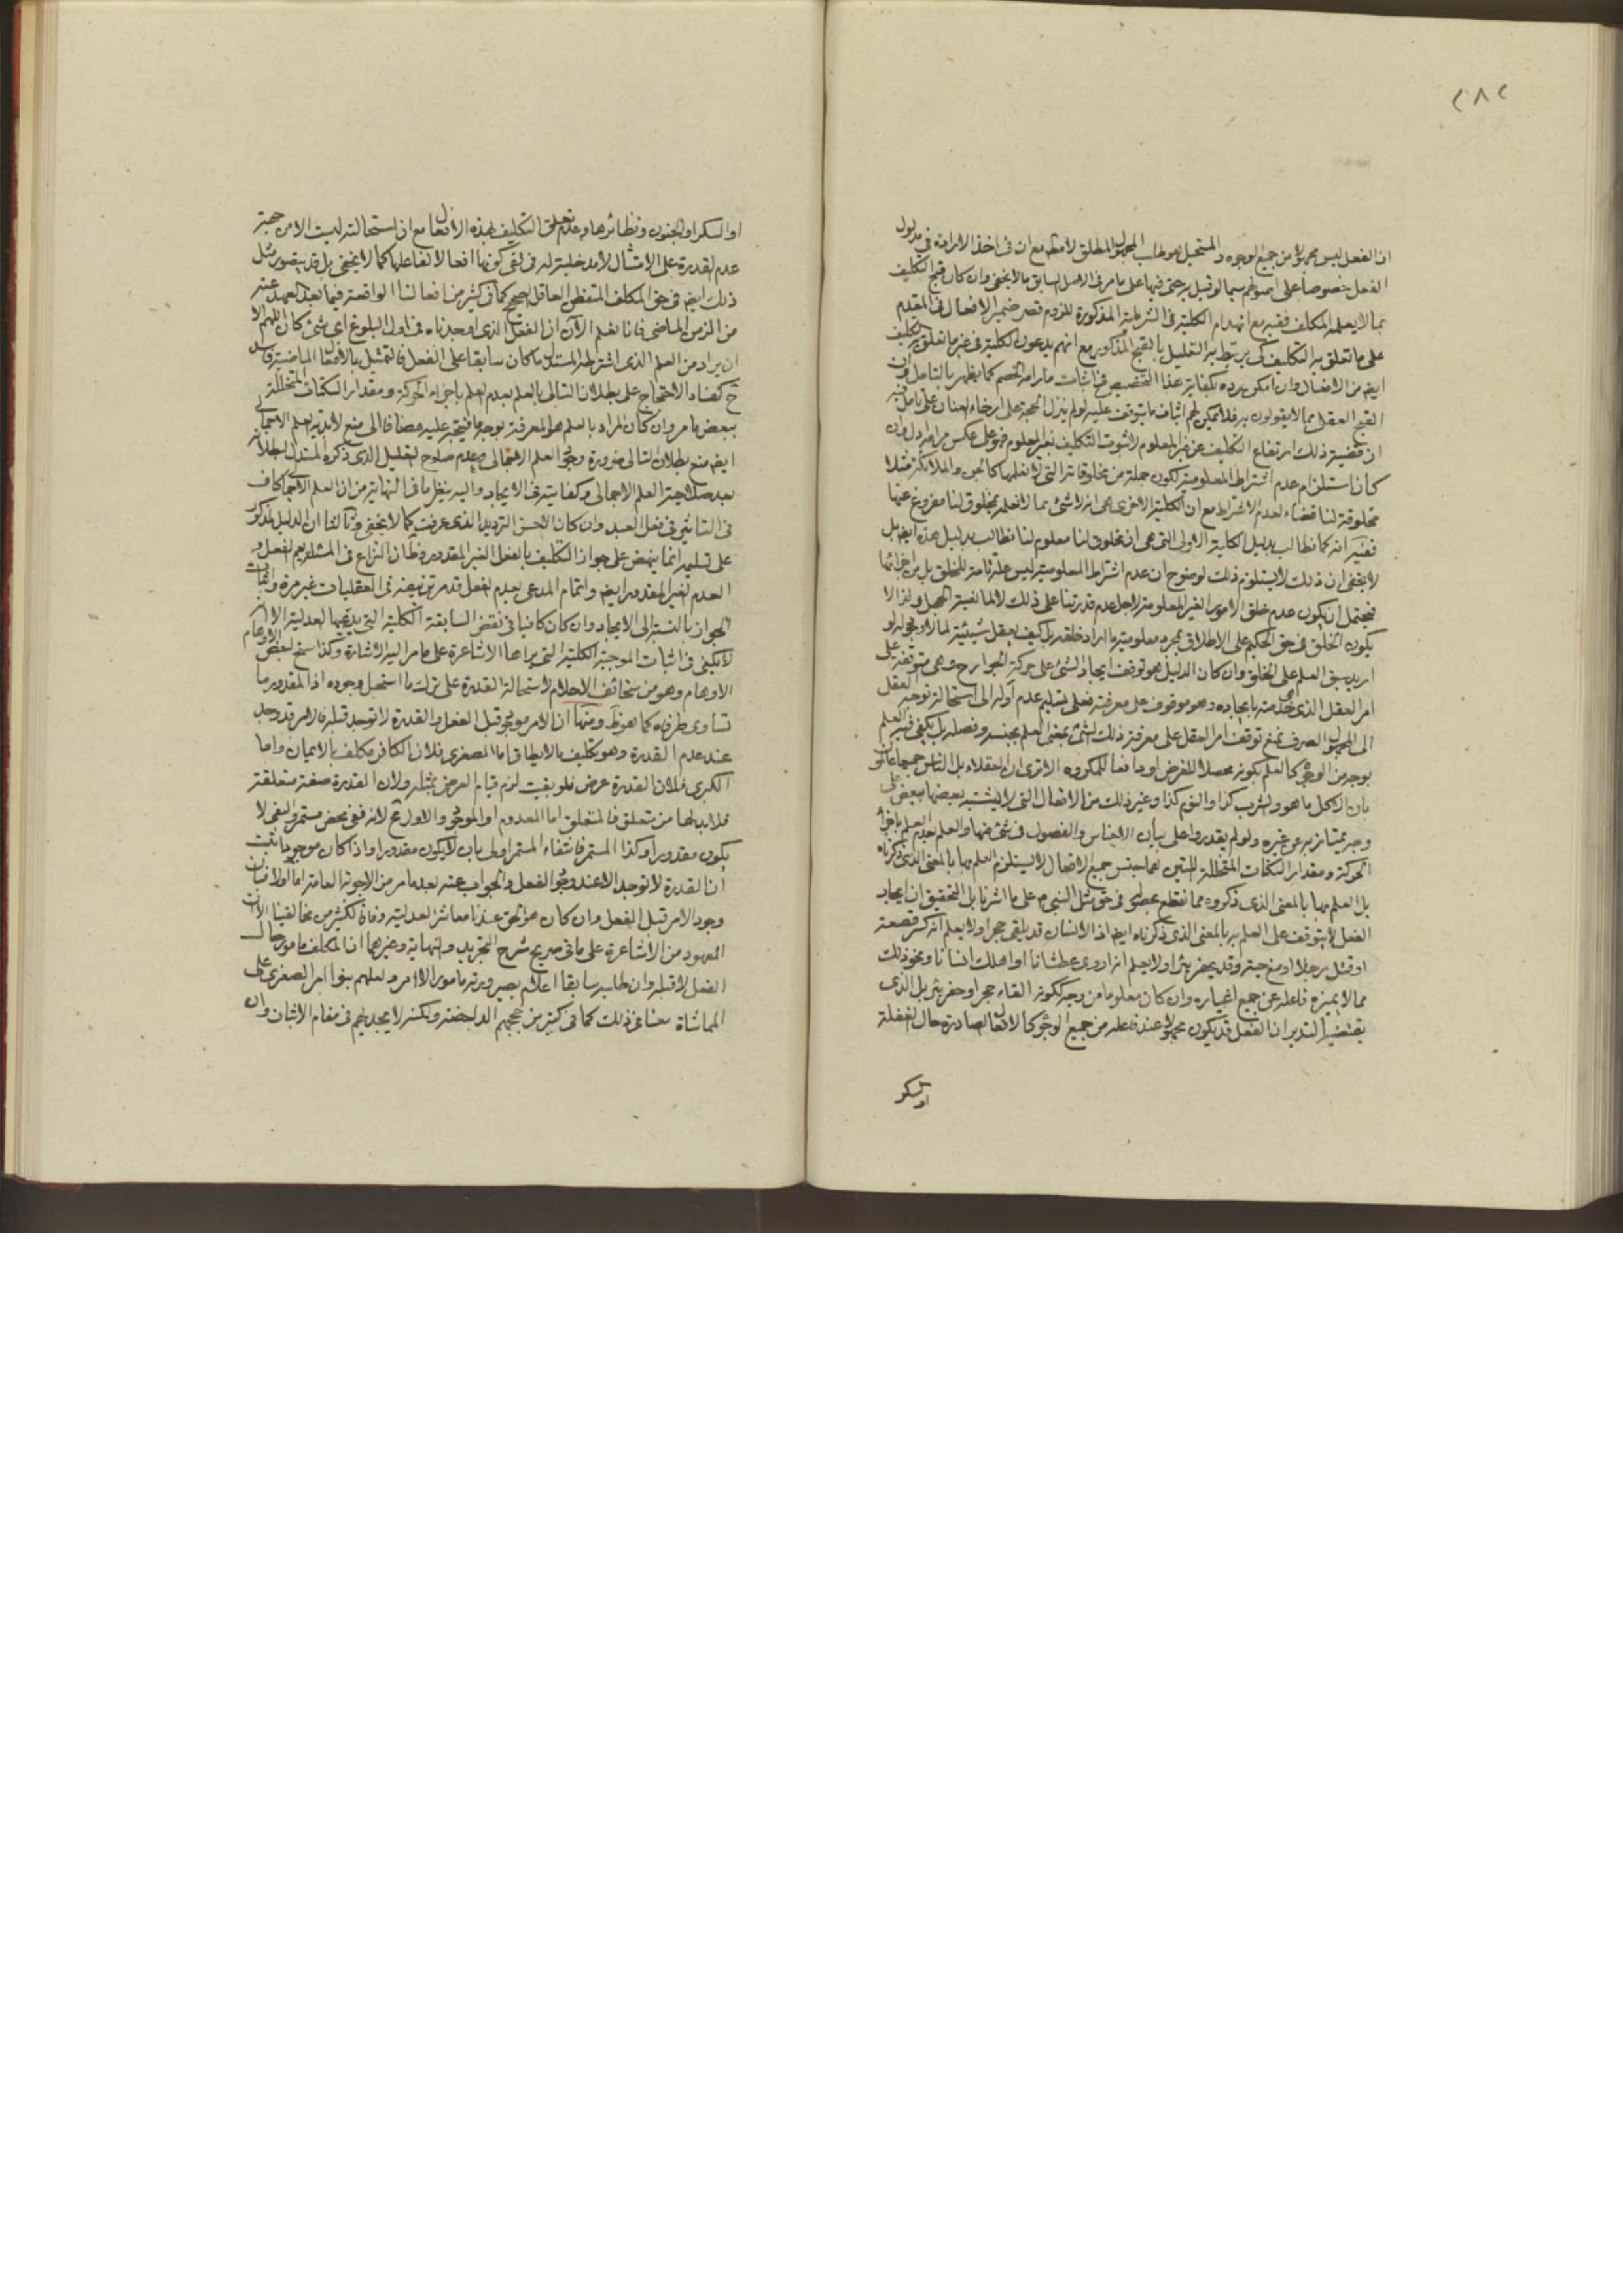 ٢٨٢
ان الفعل ليس مجهولا من جميع الوجوه والمستحيل هو طلب المجهول المطلق لا مطلقا مع ان فى اخذ الارادة فى مدلول
الفعل خصوصا على اصولهم سيما لو قيل يرجى فيها على ما مر فى الاصل السابق ما لا يخفى وان كان قبح التكليف
بما لا يعلمه المكلف ففيه مع انهدام الكلية فى الشرطية المذكورة للزوم قصر ضمير الافعال فى المقدم
على ما تعلق به التكليف كى يرتبط به التعليل بالقبح المذكور مع انهم يدعون الكلية فى غير ما تعلق به التكليف
ايضا من الافعال وان امكن رده بكفاية هذا التخصيص فى اثبات ما رامه الخصم كما يظهر بالتامل ان
القبح العقلى مما لا يقولون به فلا يمكن لهم اثبات ما يتوقف عليه لو لم ينزل الحجة على ارخاء العنان على تامل فيه
ان قضية ذلك ارتفاع التكليف عن غير المعلوم لا ثبوت التكليف بغير المعلوم فهو على عكس مرامه ادل وان
كان استلزام عدم اشتراط المعلومية لكون جملة من مخلوقاته التى لا نعلمها كالجن والملائكة مثلا
مخلوقة لنا قضاء لعدم الاشتراط مع ان الكلية الاخرى هى انه لا شئ مما لا نعلم بمخلوق لنا مفروغ عنها
ففيه انه كما نطالب بدليل الكلية الاولى التى هى ان مخلوق لنا معلوم لنا نطالب بدليل هذه ايضا بل
لا يخفى ان ذلك لا يستلزم ذلك لوضوح ان عدم اشتراط المعلومية ليس علة تامة للخلق بل من اجزائها
فيحتمل ان يكون عدم خلق الامور الغير المعلومة لاجل عدم قدرتنا على ذلك لا لمانعية الجهل ولذا لا
يكون الخلق فى حق الحكيم على الاطلاق بمجرد معلومية ما اراد خلقه بل كيف يعقل شيئية لما لا وجود له لو
اريد سبق العلم على الخلق وان كان الدليل هو توقف ايجاد الشئ على حركة الجوارح وهى متوقفة على
امر العقل الذى هى جند منه بايجاده وهو موقوف على معرفته فعلى تسليم عدم اوله الى استحالة توجه العقل
الى المجهول الصرف نمنع توقف امر العقل على معرفة ذلك الشئ بمعنى العلم بجنسه وفصله بل يكفى فيه العلم
بوجه من الوجوه كالعلم بكونه محصلا للغرض او دافعا للمكروه الا ترى ان العقلاء بل الناس جميعا عالمون
بان الاكل ما هو والشرب كذا والنوم كذا وغير ذلك من الافعال التى لا يشتبه بعضها ببعض على
وجه يمتاز به عن غيره ولو لم يقدروا على بيان الاجناس والفصول فى شئ منها والعلم بعدم العلم باجزاء
الحركة ومقدار السكنات المتخللة اللتين هما جنس جميع الافعال لا يستلزم العلم بها بالمعنى الذى ذكرناه
بل العلم بها بالمعنى الذى ذكروه مما نقطع بعدمه فى حق مثل النبى ص على ما اشرنا بل التحقيق ان ايجاد
الفعل لا يتوقف على العلم به بالمعنى الذى ذكرناه ايضا اذ الانسان قد يلقى حجرا ولا يعلم انه كسر قصعة
او قتل رجلا او منع حية وقد يحفر بئرا ولا يعلم انه اروى عطشانا او اهلك انسانا ونحو ذلك
مما لا يميزه فاعله عن جميع اغياره وان كان معلوما من وجه ككونه القاء حجر او حفر بئر بل الذى
يقتضيه التدبر ان الفعل قد يكون مجهولا عند فاعله من جميع الوجوه كالافعال الصادرة حال الغفلة
او السكر
او السكر او الجنون ونظائرها وعدم تعلق التكليف بهذه الافعال مع ان استحالته ليست الا من جهة
عدم القدرة على الامتثال لا مدخلية له فى نفى كونها افعالا لفاعلها كما لا يخفى بل قد يتصور مثل
ذلك ايضا فى حق المكلف المتفطن العاقل الصحيح كما فى كثير من افعالنا الواقعة فيما بعد العهد عنه
من الزمن الماضى فانا نعلم الآن ان الفعل الذى اوجدناه فى اول البلوغ اى شئ كان اللهم الا
ان يراد من العلم الذى اشترطه المستدل ما كان سابقا على الفعل فالتمثيل بالافعال الماضية فاسد
ح كفساد الاحتجاج على بطلان التالى بالعلم بعدم العلم باجزاء الحركة ومقدار السكنات المتخللة
ببعض ما مر وان كان المراد بالعلم هو المعرفة بوجه ما فيتجه عليه مضافا الى منع لابدية العلم الاجمالى
ايضا منع بطلان التالى ضرورة وجود العلم الاجمالى وعدم صلوح التعليل الذى ذكره المستدل لبطلانه
بعد صلاحية العلم الاجمالى وكفايته فى الايجاد واليه ينظر ما فى النهاية من ان العلم الاجمالى كاف
فى التاثير فى فعل العبد وان كان الاحسن الترديد الذى عرفت كما لا يخفى وثالثا ان الدليل المذكور
على تسليمه انما ينهض على جواز التكليف بالفعل الغير المقدور وظ ان النزاع فى المسئلة يعم الفعل و
العدم الغير المقدور ايضا واتمام المدعى بعدم الفصل قد مر تزييفه فى العقليات غير مرة واثبات
الجواز بالنسبة الى الايجاد وان كان كافيا فى نقض السابقة الكلية التى يدعيها العدلية الا انه
لا يكفى فى اثبات الموجبة الكلية التى يراها الاشاعرة على ما مر اليه الاشارة وكذا سنح لبعض الاوهام
الاوهام وهو من سخائف الاحلام لاستحالة القدرة على ترك ما استحيل وجوده اذ المقدور ما
تساوى طرفاه كما هو ظ ومنها ان الامر موجود قبل الفعل والقدرة لا توجد قبله فالامر قد وجد
عند عدم القدرة وهو تكليف ما لا يطاق اما الصغرى فلان الكافر مكلف بالايمان واما
الكبرى فلان القدرة عرض فلو بقيت لزم قيام العرض بمثله ولان القدرة صفة متعلقة
فلا بد لها من متعلق فالمتعلق اما المعدوم او الموجود والاول مح لانه نفى محض مستمر والنفى لا
يكون مقدورا وكذا المستمر فانتفاء المستمر اولى بان لا يكون مقدورا واذا كان موجودا ثبت
ان القدرة لا توجد الا عند وجود الفعل والجواب عنه بعد ما مر من الاجوبة العامة اما اولا فبان
وجود الامر قبل الفعل وان كان هو الحق عندنا معاشر العدلية وفاقا لكثير من مخالفينا الا ان
المعهود من الاشاعرة على ما فى صريح شرح التجريد والنهاية وغيرهما ان المكلف مامور حال
الفعل لا قبله وان طلبه سابقا اعلام بصيرورته مامورا لا امر ولعلهم بنوا امر الصغرى على
المماشاة معنا فى ذلك كما فى كثير من حججهم الداحضة ولكنه لا يجديهم فى مقام الاثبات وان